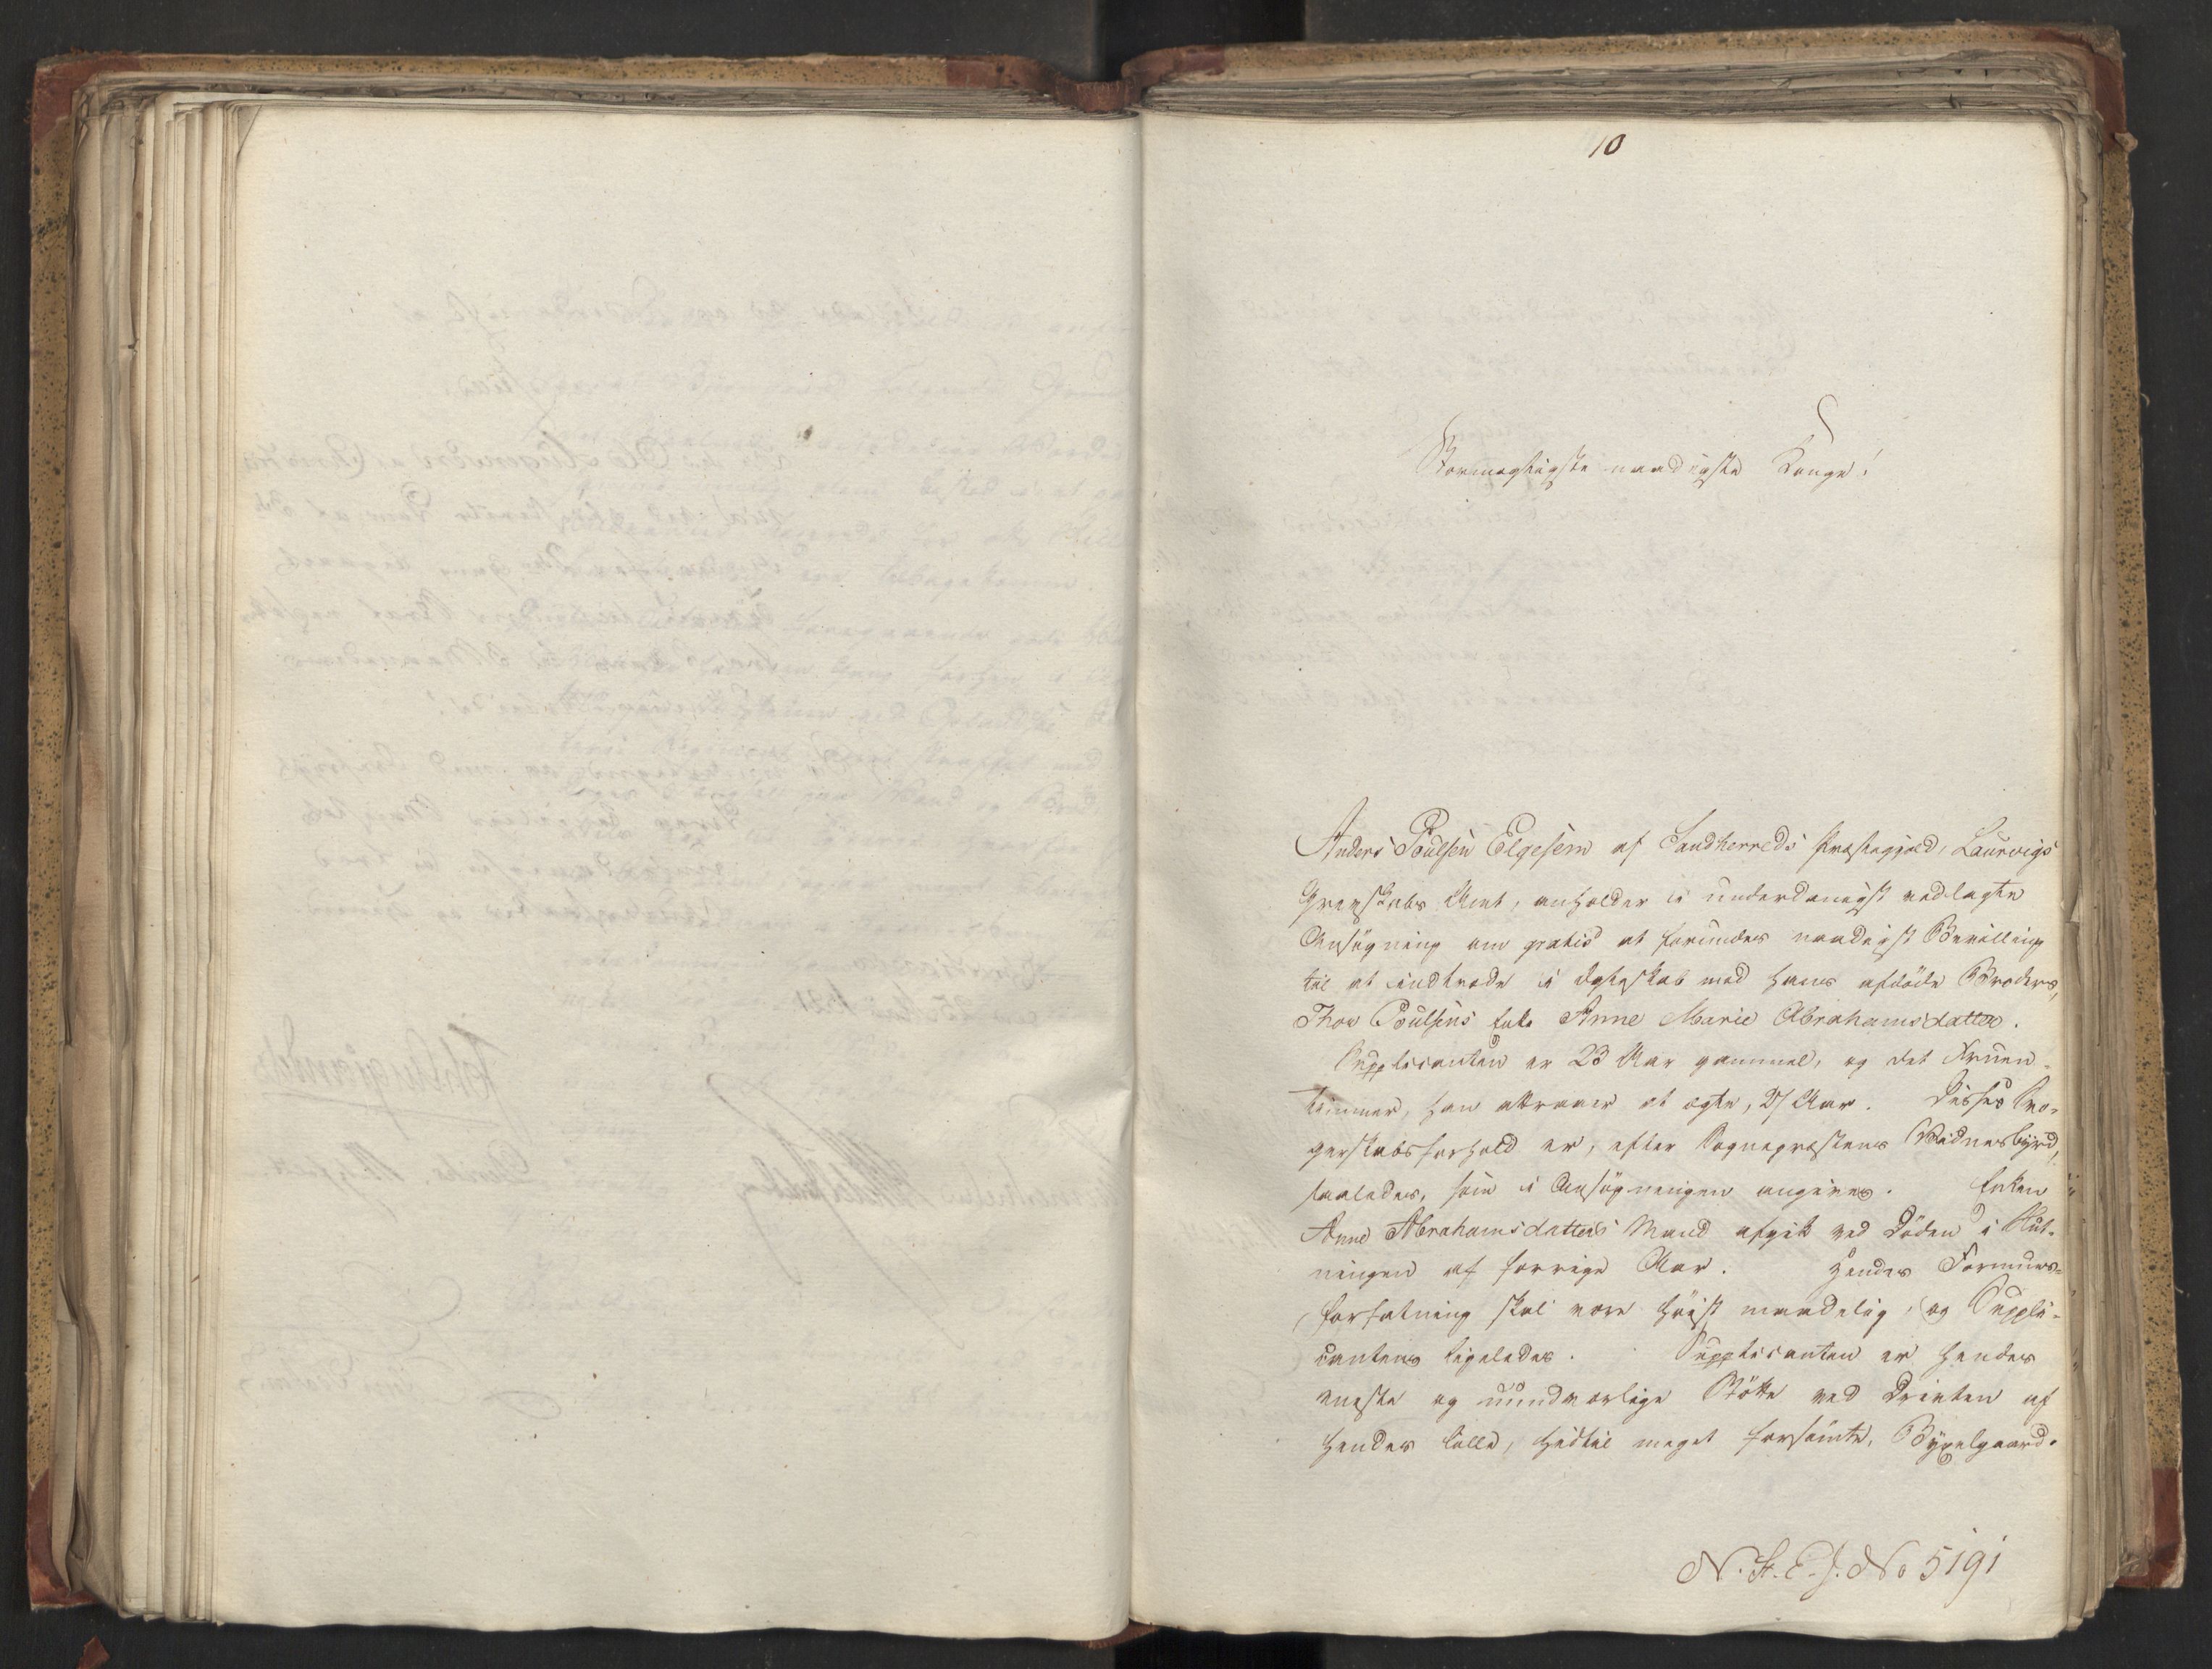 10
Stormægtigste naadigste Konge!
Anders Poulsen Elgesem af Sandherreds Præstegjeld, Laurvigs
Grevskabs Amt, anholder i underdanigst vedlagte
Ansøgning om gratis at forundes naadigst Bevilling
til at indtræde i Ægteskab med hans afdøde Broders,
Thor Poulsens Enke Anne Marie Abrahamsdatter.
Supplicanten er 23 Aar gammel, og det Fruen-
timmer, han attraaer at ægte, 27 Aar. Disses Svo-
gerskabsforhold er, efter Sognepræstens Vidnesbyrd,
saaledes, som i Ansøgningen angives. Enken
Anne Abrahamsdatters Mand afgik ved Døden i Slut-
ningen af forrige Aar. Hendes Formues-
forfatning skal være høist maadelig, og Suppli-
cantens ligeledes. Supplicanten er hendes
eneste og uundværlige Støtte ved Driften af
hendes lille, hidtil meget forsømte, Bygselgaard.
N. St. E. J. No 5191